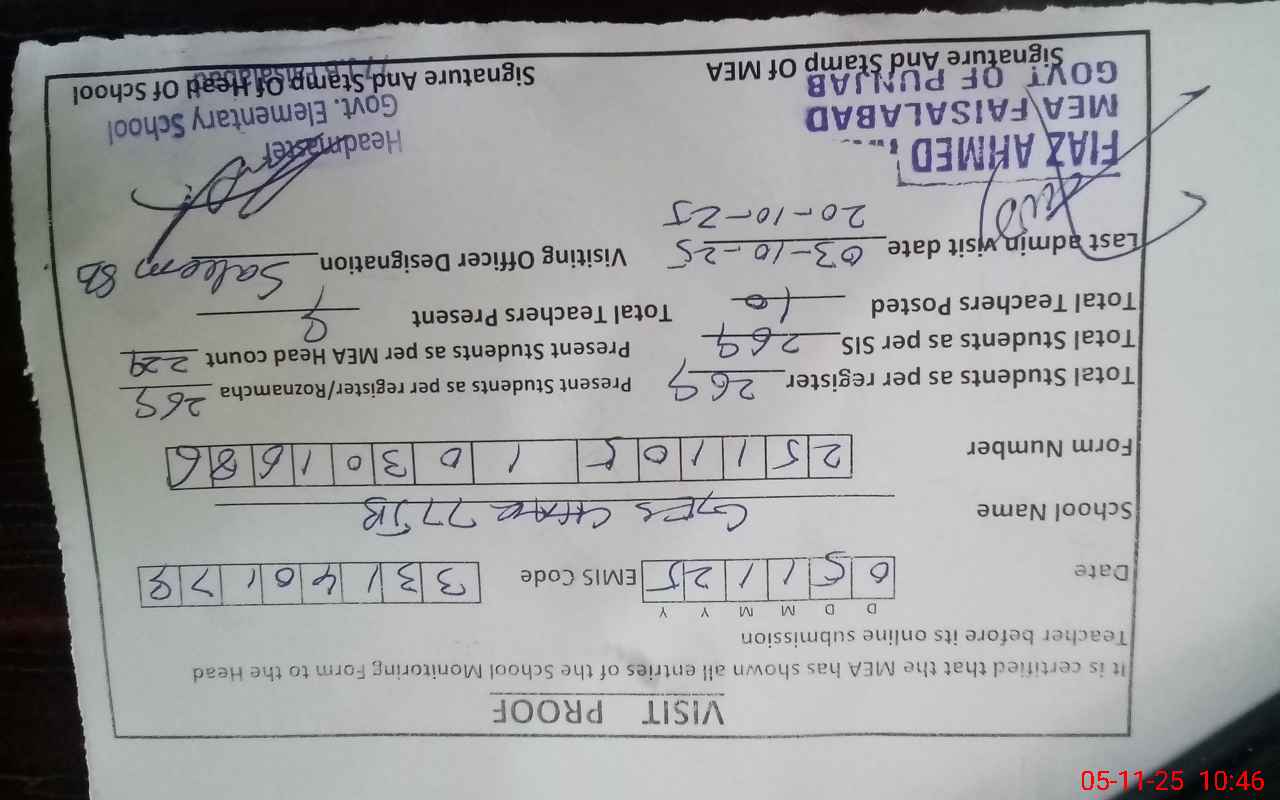 VISIT PROOF
It is certified that the MEA has shown all entries of the School Monitoring Form to the Head
Teacher before its online submission
D D M M Y Y
Date 0 5 1 1 2 5 EMIS Code 3 3 1 4 0 1 7 9
School Name GES CHAK 77 JB
Form Number 2 5 1 1 0 5 1 0 3 0 1 6 8 6
Total Students as per register 269 Present Students as per register/Roznamcha 269
Total Students as per SIS 269 Present Students as per MEA Head count 229
Total Teachers Posted 10 Total Teachers Present 9
Last admin visit date 03-10-25 Visiting Officer Designation Saleem SB
20-10-25
FIAZ AHMED
MEA FAISALABAD
GOVT OF PUNJAB
Headmaster
Govt. Elementary School
77 J.B Faisalabad
Signature And Stamp Of MEA Signature And Stamp Of Head Of School
05-11-25 10:46